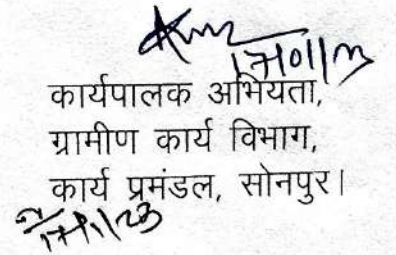 17/01/23
कार्यपालक अभियता,
ग्रामीण कार्य विभाग,
कार्य प्रमंडल, सोनपुर।
17/1/23